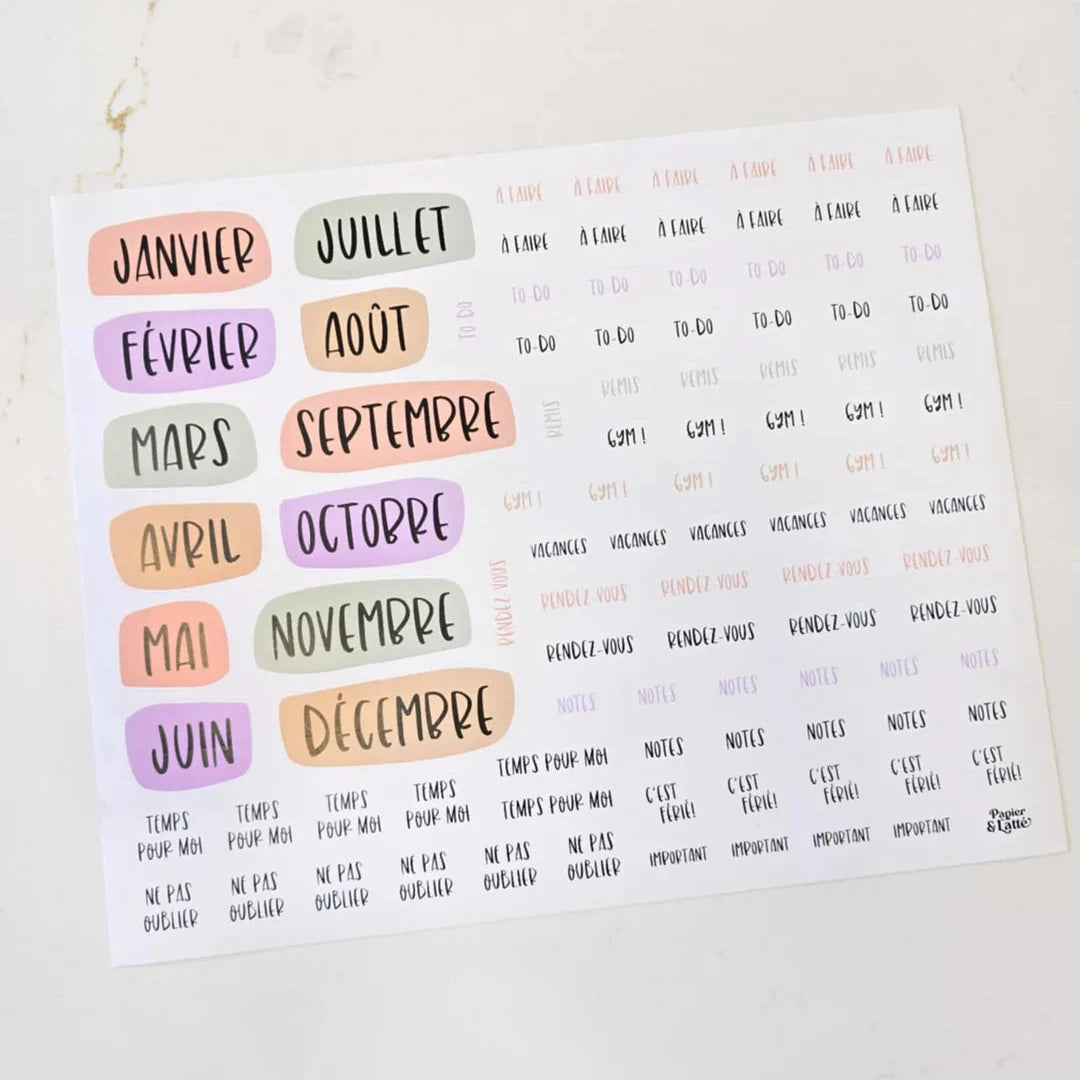 JANVIER
FÉVRIER
MARS
AVRIL
MAI
JUIN
JUILLET
AOÛT
SEPTEMBRE
OCTOBRE
NOVEMBRE
DÉCEMBRE
À FAIRE À FAIRE À FAIRE À FAIRE À FAIRE À FAIRE
À FAIRE À FAIRE À FAIRE À FAIRE À FAIRE À FAIRE
TO-DO
TO-DO TO-DO TO-DO TO-DO TO-DO TO-DO
TO-DO TO-DO TO-DO TO-DO TO-DO TO-DO
REMIS
REMIS REMIS REMIS REMIS REMIS
GYM ! GYM ! GYM ! GYM ! GYM !
GYM ! GYM ! GYM ! GYM ! GYM ! GYM !
VACANCES VACANCES VACANCES VACANCES VACANCES VACANCES
RENDEZ-VOUS
RENDEZ-VOUS RENDEZ-VOUS RENDEZ-VOUS RENDEZ-VOUS
RENDEZ-VOUS RENDEZ-VOUS RENDEZ-VOUS RENDEZ-VOUS
NOTES NOTES NOTES NOTES NOTES NOTES
TEMPS POUR MOI NOTES NOTES NOTES NOTES NOTES
TEMPS TEMPS TEMPS TEMPS
POUR MOI POUR MOI POUR MOI POUR MOI
TEMPS POUR MOI
C'EST C'EST C'EST C'EST C'EST
FÉRIÉ! FÉRIÉ! FÉRIÉ! FÉRIÉ! FÉRIÉ!
NE PAS NE PAS NE PAS NE PAS NE PAS NE PAS
OUBLIER OUBLIER OUBLIER OUBLIER OUBLIER OUBLIER
IMPORTANT IMPORTANT IMPORTANT IMPORTANT
Papier
& Latté